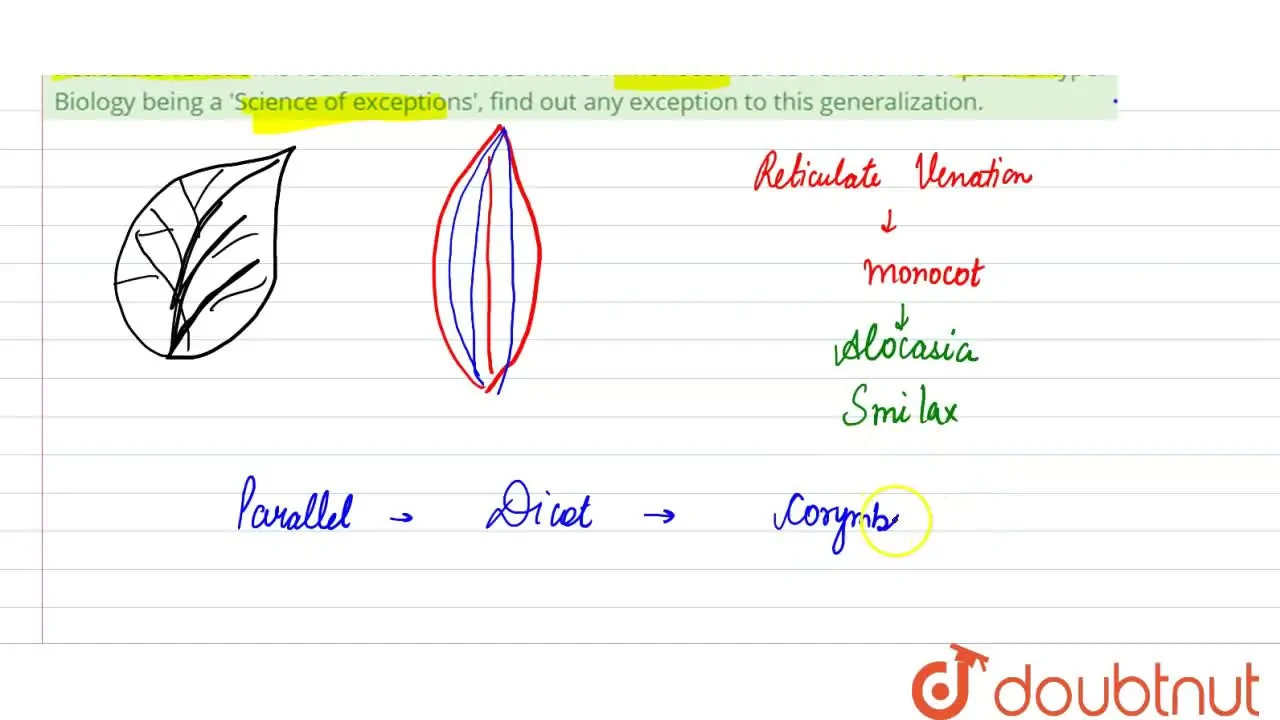 Biology being a 'Science of exceptions', find out any exception to this generalization.
Reticulate Venation
↓
Monocot
↓
Alocasia
Smilax
Parallel → Dicot → Corymb
doubtnut